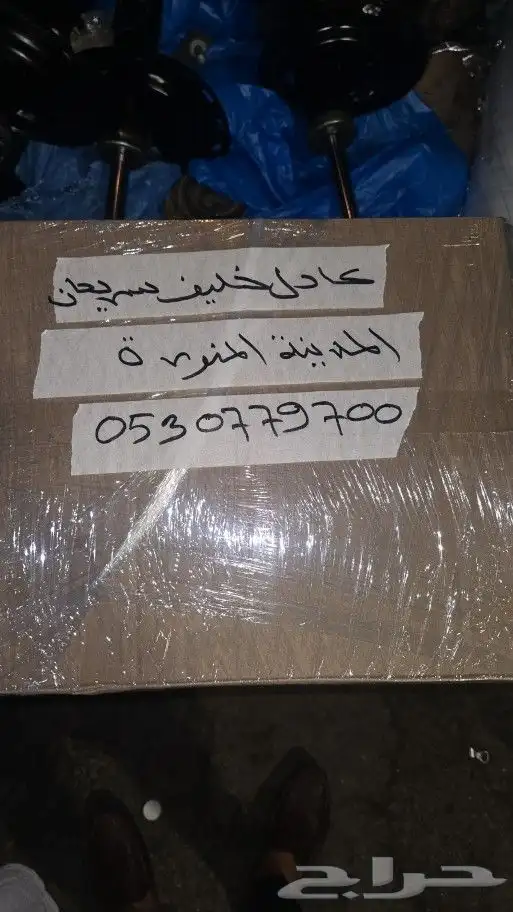 عادل خليف سريحان
المدينة المنورة
0530779700
حراج